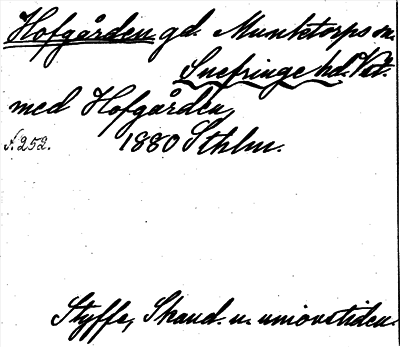 Hofgården gd. Munktorps sn.
Snefringe hd. Vstl.
med Hofgården,
s. 252. 1880 Sthlm.
Styffe, Skand. u. unionstiden.